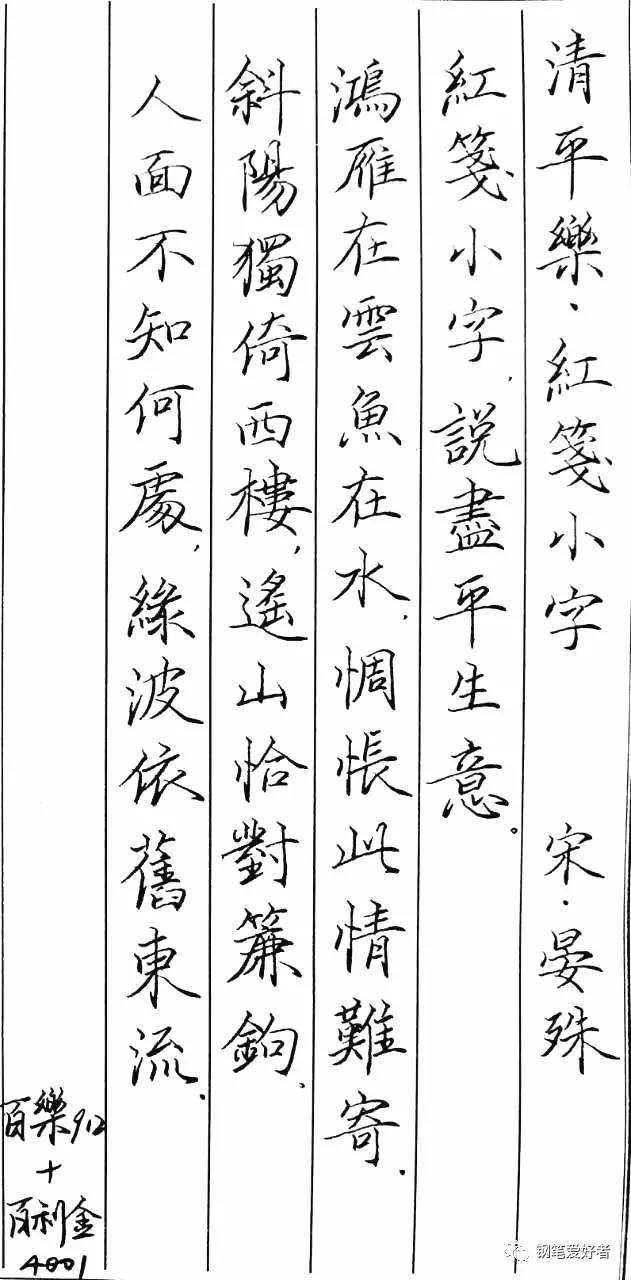 清平樂·紅箋小字 宋·晏殊
紅箋小字,說盡平生意。
鴻雁在雲魚在水,惆悵此情難寄.
斜陽獨倚西樓,遙山恰對簾鉤.
人面不知何處,綠波依舊東流.
百樂912
+
百利金
4001
钢笔爱好者